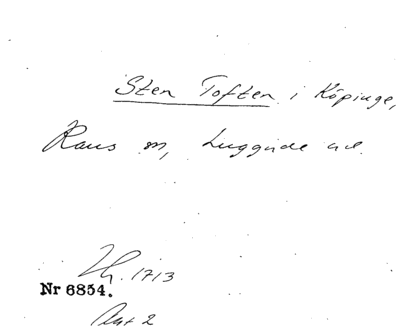 Sten Toften i Köpinge,
Raus sn, Luggude hd.
1713
Nr 6854.
Akt 2